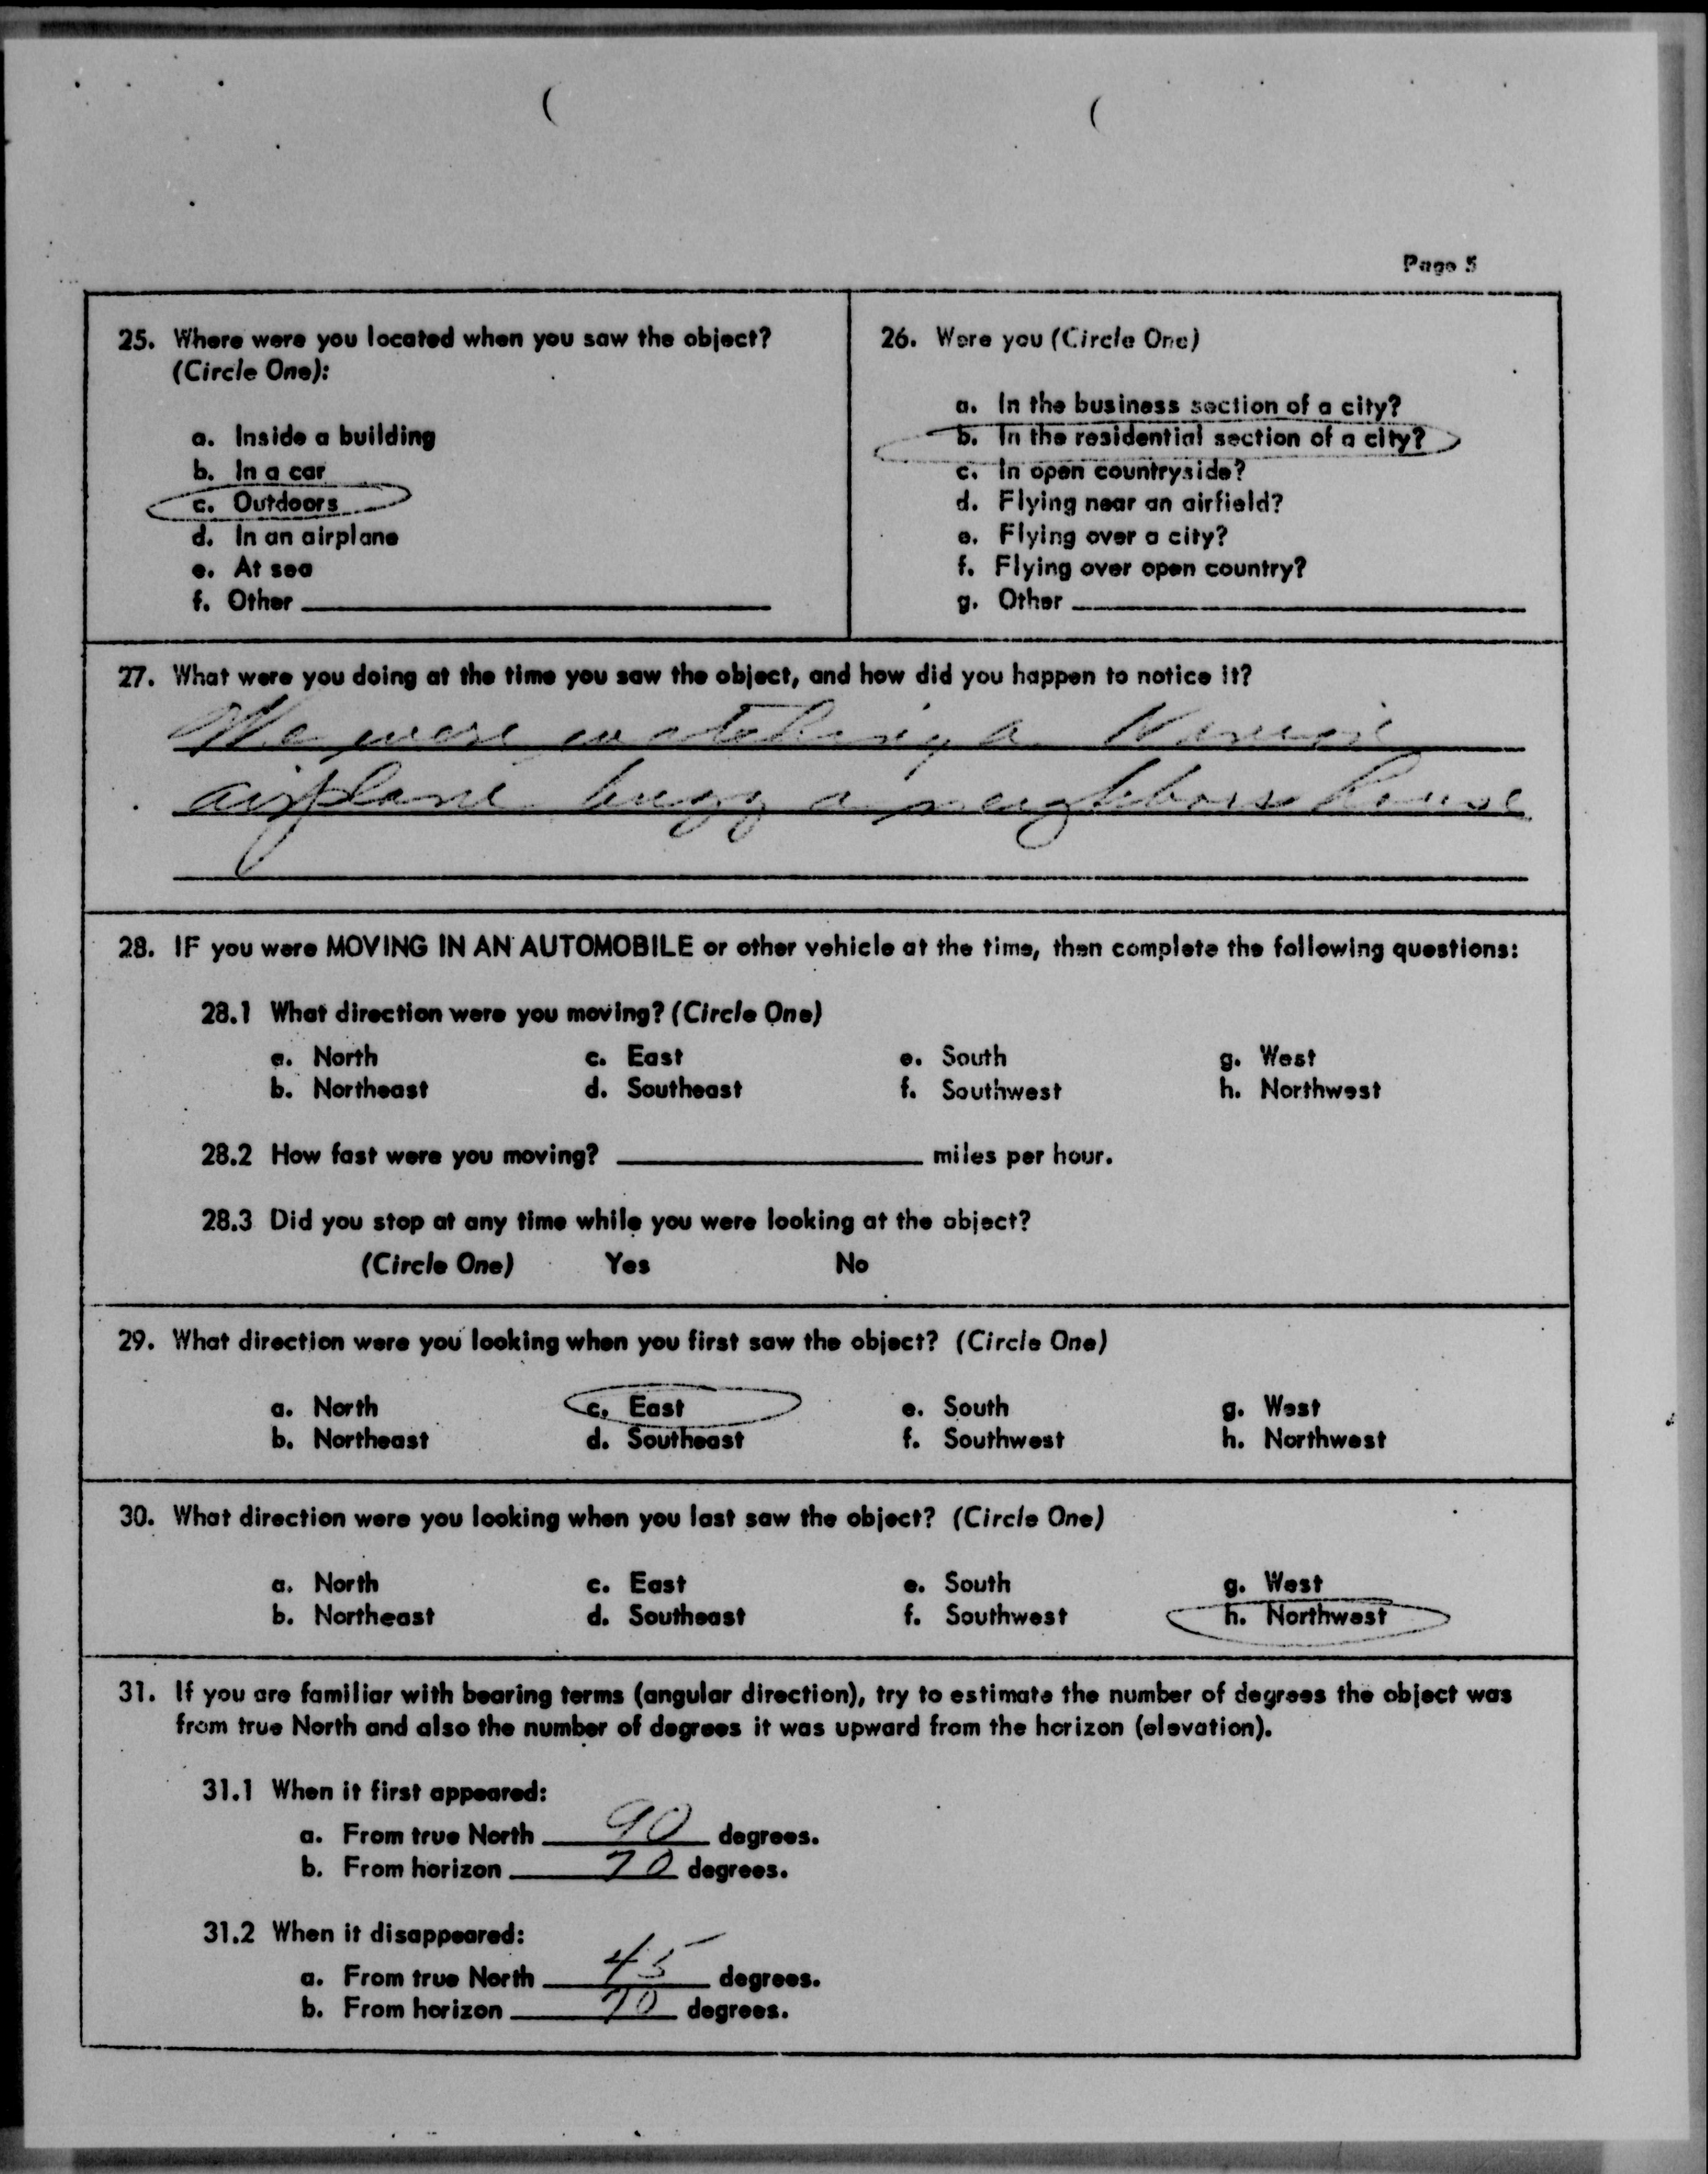 Page 5
25. Where were you located when you saw the object?
(Circle One):
a. Inside a building
b. In a car
c. Outdoors
d. In an airplane
e. At sea
f. Other
26. Were you (Circle One)
a. In the business section of a city?
b. In the residential section of a city?
c. In open countryside?
d. Flying near an airfield?
e. Flying over a city?
f. Flying over open country?
g. Other
27. What were you doing at the time you saw the object, and how did you happen to notice it?
We were watching a
airplane buzz a neighbors house
28. IF you were MOVING IN AN AUTOMOBILE or other vehicle at the time, then complete the following questions:
28.1 What direction were you moving? (Circle One)
a. North c. East e. South g. West
b. Northeast d. Southeast f. Southwest h. Northwest
28.2 How fast were you moving? miles per hour.
28.3 Did you stop at any time while you were looking at the object?
(Circle One) Yes No
29. What direction were you looking when you first saw the object? (Circle One)
a. North c. East e. South g. West
b. Northeast d. Southeast f. Southwest h. Northwest
30. What direction were you looking when you last saw the object? (Circle One)
a. North c. East e. South g. West
b. Northeast d. Southeast f. Southwest h. Northwest
31. If you are familiar with bearing terms (angular direction), try to estimate the number of degrees the object was
from true North and also the number of degrees it was upward from the horizon (elevation).
31.1 When it first appeared:
a. From true North 90 degrees.
b. From horizon 70 degrees.
31.2 When it disappeared:
a. From true North 45 degrees.
b. From horizon 70 degrees.